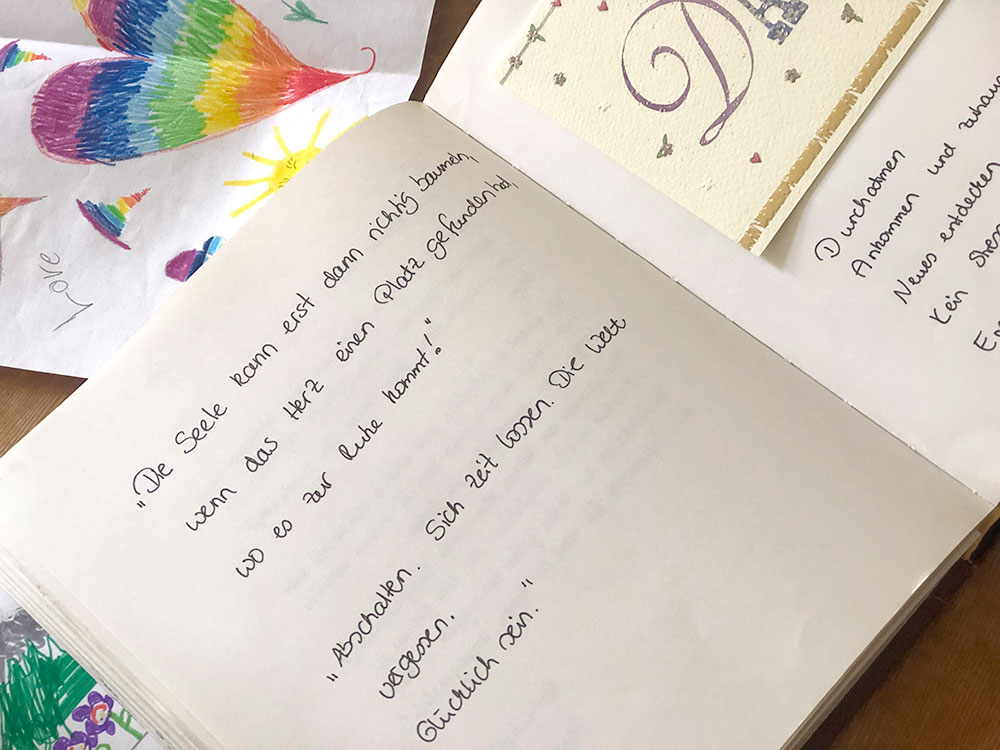 Love
„Die Seele kann erst dann richtig baumeln,
wenn das Herz einen Platz gefunden hat,
wo es zur Ruhe kommt!"
„Abschalten. Sich Zeit lassen. Die Welt
vergessen.
Glücklich sein."
Durchatmen
Ankommen und
Neues entdecken
Kein